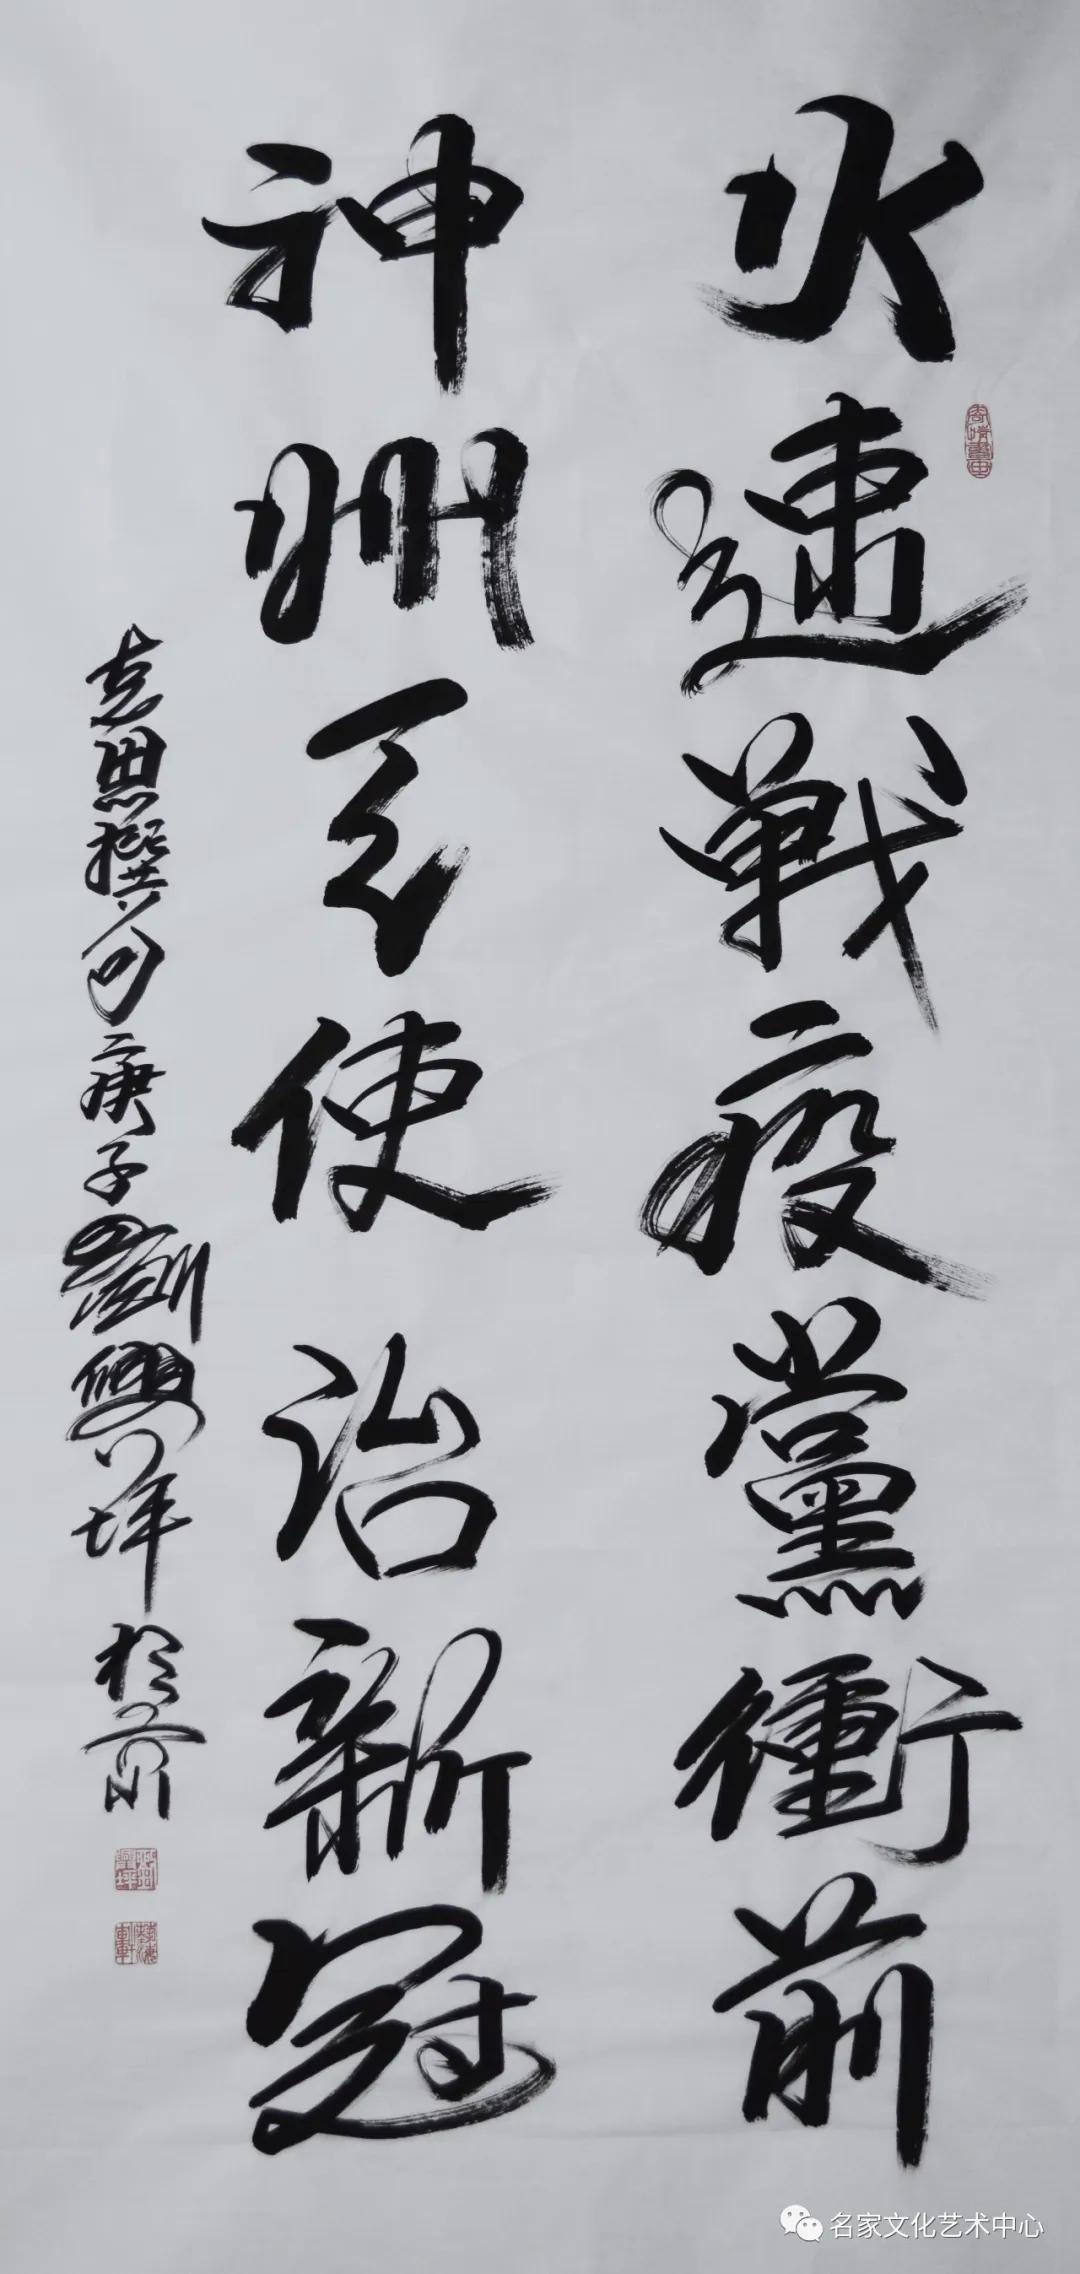 火速戰疫黨衝前
神州天使治新冠
袁思撰句庚子劉興坪於京
名家文化艺术中心